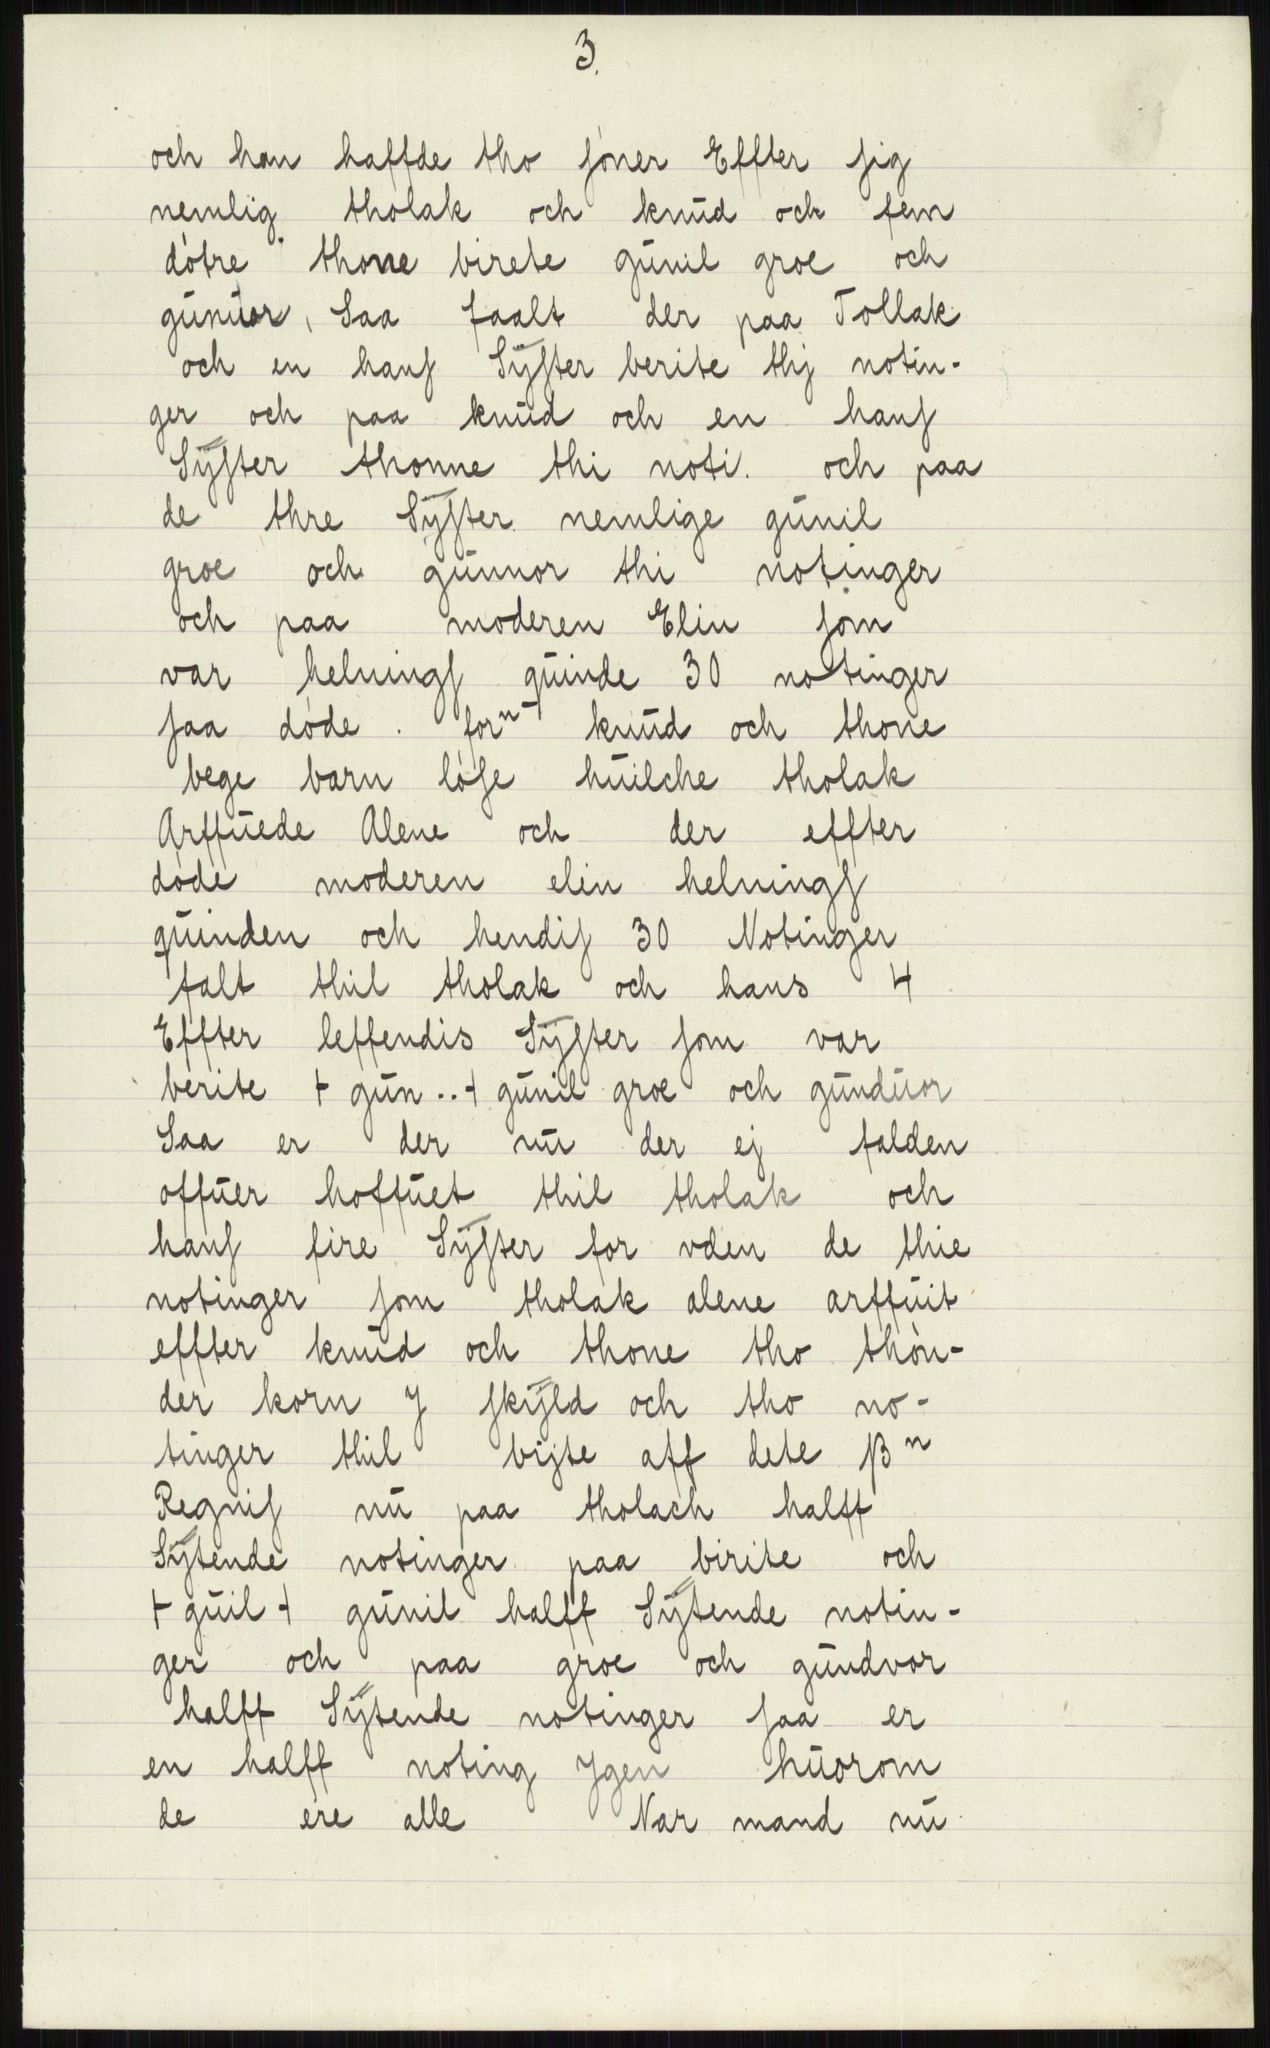 3.
och han haffde tho sóner Effter sig
nemlig tholak och knŭd och fem
dótre thone birete gŭnil groe och
gŭnŭor, Saa faalt der paa Tollak
och en hans Sÿster berite thj notin-
ger och paa knŭd och en hans
Sÿster thonne thi noti. och paa
de thre Sÿster nemlige gŭnil
groe och gŭnnor thi notinger
och paa moderen Elin som
var helnings qŭinde 30 notinger
saa dóde. forⁿ knŭd och thone
bege barn lóse hŭilche tholak
Arffŭede Alene och der effter
dóde moderen elin helnings
qŭinden och hendis 30 Notinger
falt thil tholak och hans 4
Effter leffendis Sÿster som var
berite + gŭn..+ gŭnil groe och gŭndŭor
Saa er der nŭ der ej falden
offŭer hoffŭet thil tholak och
hans fire Sÿster for vden de thie
notinger som tholak alene arffŭit
effter knŭd och thone tho thón-
der korn J skÿld och tho no-
tinger thil bijte aff dete ßⁿ
Regnis nŭ paa tholach halff
Sÿtende notinger paa birite och
+ gŭil + gŭnil halff Sÿtende notin-
ger och paa groe och gŭndvor
halff Sÿtende notinger saa er
en halff noting Jgen hŭorom
de ere alle Nar mand nŭ